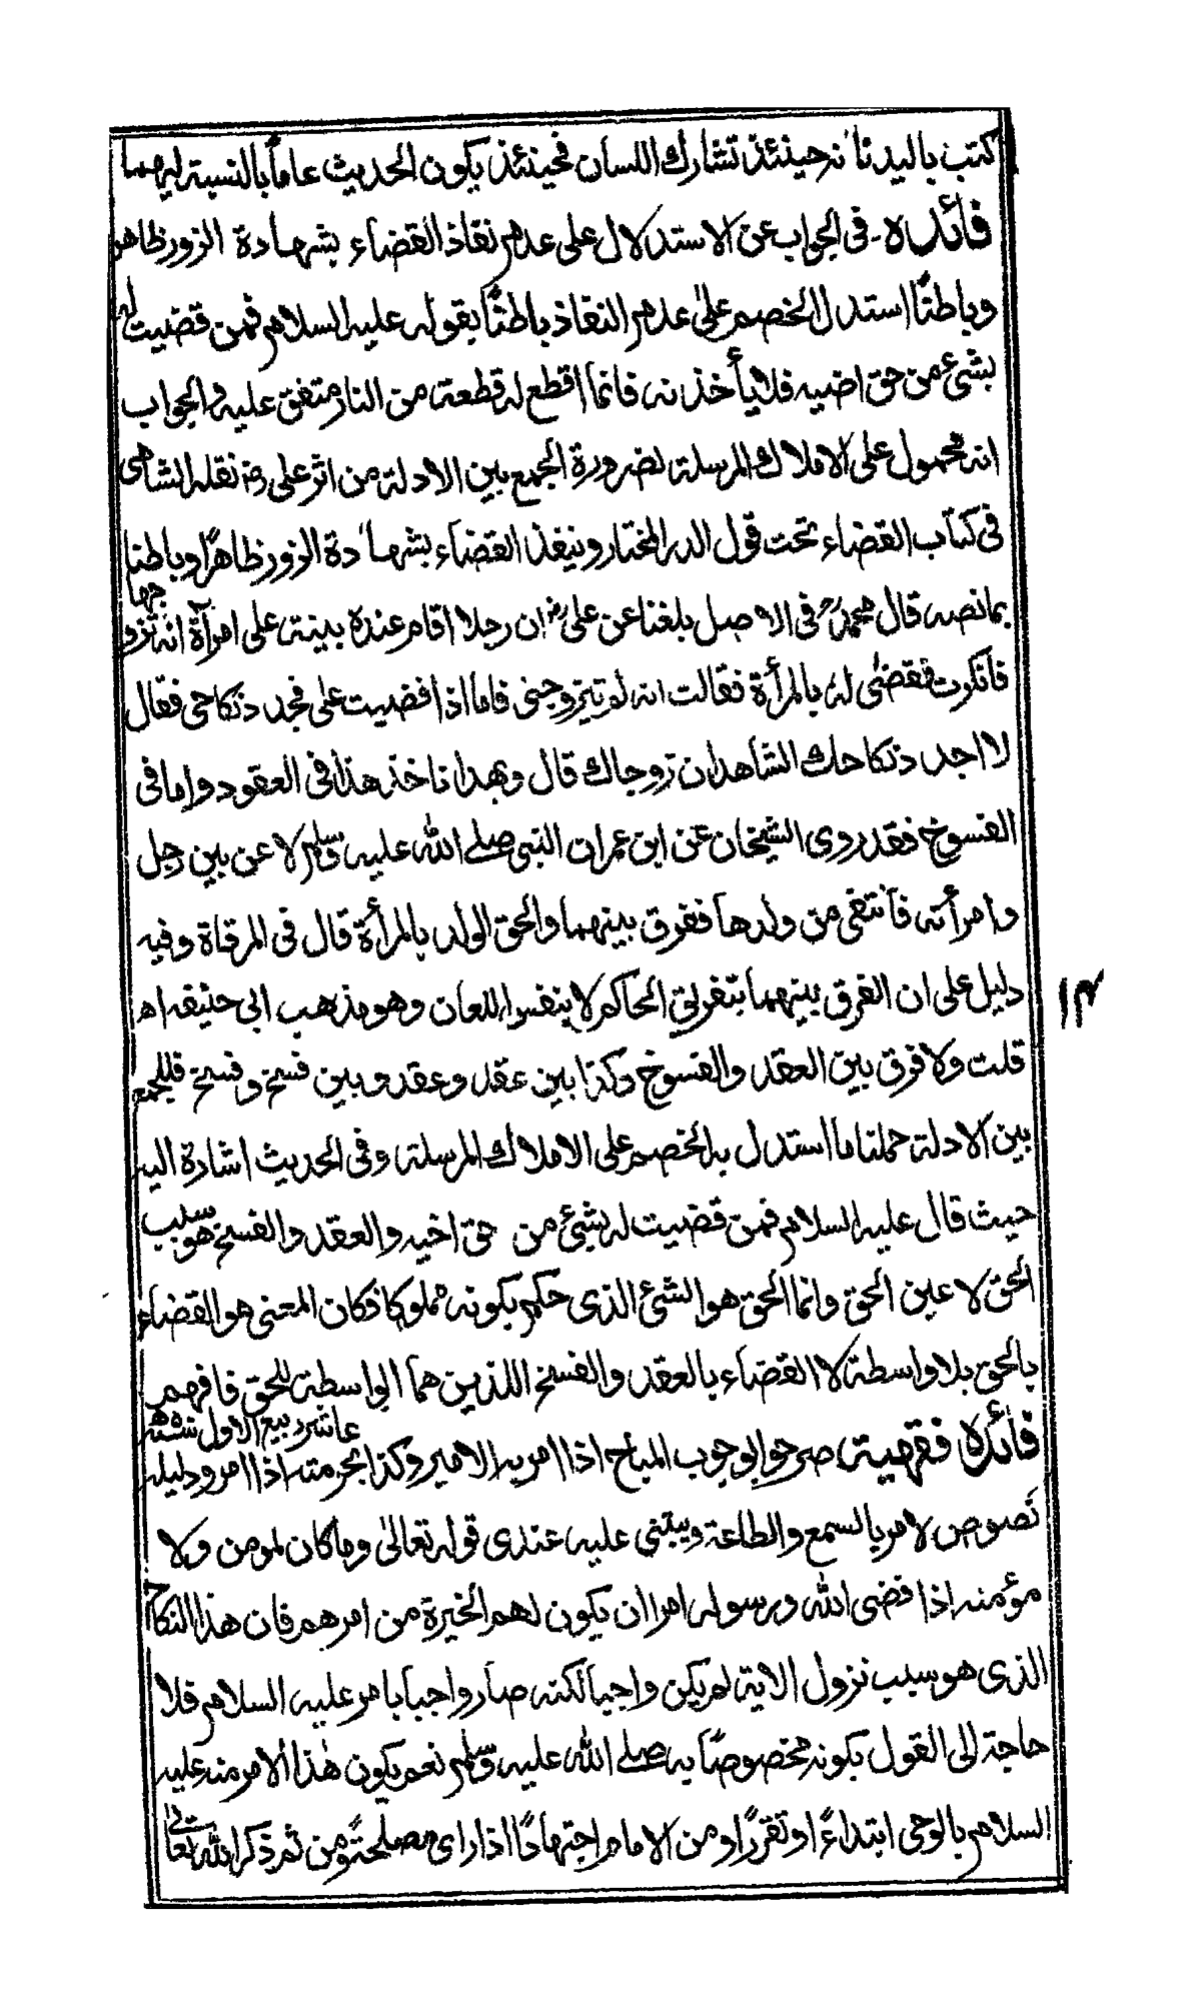 كتب باليد فانه حينئذ تشارك اللسان فحينئذ يكون الحديث عاماً بالنسبة ليهما
فائدہ۔ فى الجواب عن الاستدلال على عدم نفاذ القضاء بشهادة الزور ظاهر
وباطناً استدل الخصم علىٰ عدم النفاذ باطناً بقوله عليه السلام فمن قضيت له
بشئ من حق اخيه فلا يأخذنه فانما اقطع له قطعة من النار متفق عليه والجواب
انه محمول على الاملاك المرسلة لضرورة الجمع بين الادلة من اثر على رض نقله الشامى
فى كتاب القضاء تحت قول الدر المختار وينفذ القضاء بشهادة الزور ظاهرًا وباطنا
بما نصه قال محمد رح فى الاصل بلغنا عن على رض ان رجلا اقام عنده بينة على امرأة انه تزوجها
فانكرت فقضى له بالمرأة فقالت انه لم يتزوجنى فاما اذا قضيت على فجدد نكاحى فقال
لا اجدد نكاحك الشاهدان زوجاك قال وبهذا ناخذ هذا فى العقود واما فى
الفسوخ فقد روى الشيخان عن ابن عمر ان النبى صلے الله عليه وسلم لاعن بين رجل
وامرأته فانتفى من ولدها ففرق بينهما والحق الولد بالمرأة قال فى المرقاة وفيه
دليل على ان الفرق بينهما بتفريق الحاكم لا بنفس اللعان وهو مذهب ابى حنيفه اه
۱۴
قلت ولا فرق بين العقد والفسوخ وكذا بين عقد وعقد وبين فسخ وفسخ فللجمع
بين الادلة حملنا ما استدل به الخصم على الاملاك المرسلة وفى الحديث اشارة اليه
حيث قال عليه السلام فمن قضيت له بشئ من حق اخيه والعقد والفسخ هو سبب
الحق لا عين الحق وانما الحق هو الشئ الذى حكم بكونه مملوكا فكان المعنى هو القضاء
بالحق بلا واسطة لا القضاء بالعقد والفسخ اللذين هما الواسطة للحق فافهم
عاشر ربيع الاول
فائدہ فقهية صرحوا بوجوب المباح اذا امر به الامير وكذا بحرمته اذا امر ودليله
نصوص لامر بالسمع والطاعة ويبتنى عليه عندى قوله تعالىٰ وما كان لمومن ولا
مؤمنه اذا قضى الله ورسوله امرا ان يكون لهم الخيرة من امرهم فان هذا النكاح
الذى هو سبب نزول الاية لم يكن واجبا لكنه صار واجبا بامر عليه السلام فلا
حاجة الى القول بكونه مخصوصًا به صلے الله عليه وسلم نعم يكون هٰذا الامر منه عليه
السلام بالوحى ابتداءً او تقررًا ومن الامام اجتهادًا اذا راى مصلحة ومن ثم ذكر الله تعالىٰ